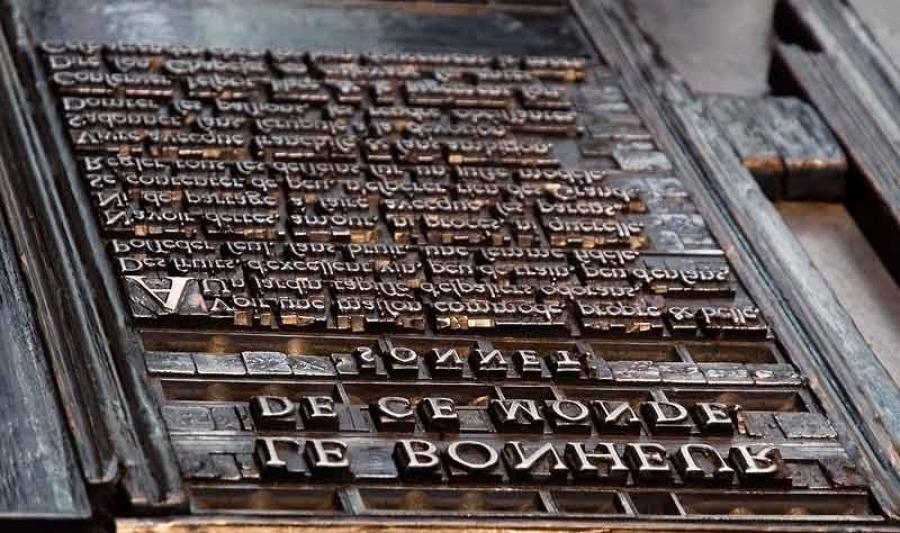 LE BONHEUR
DE CE MONDE
SONNET
Avoir une maiſon commode, propre & belle,
Un jardin tapiſſé d'eſpaliers odorans,
Des fruits, d'excellent vin, peu de train, peu d'enfans,
Poſſeder ſeul, ſans bruit, une femme fidéle.
N'avoir dettes, amour, ni procés, ni querelle,
Ni de partage à faire avecque ſes parens,
Se contenter de peu, n'eſpérer rien des Grands,
Régler tous ſes deſſeins ſur un juſte modéle.
Vivre avecque franchiſe & ſans ambition,
S'adonner ſans ſcrupule à la dévotion,
Domter ſes paſſions, les rendre obéiſſantes.
Conſerver l'eſprit libre, & le jugement fort,
Dire ſon Chapelet en cultivant ſes entes,